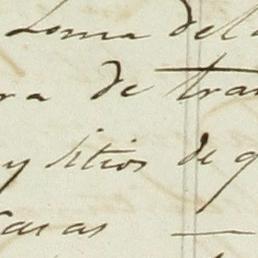 Loma del
ra de tra
y sitios de g
Casas —